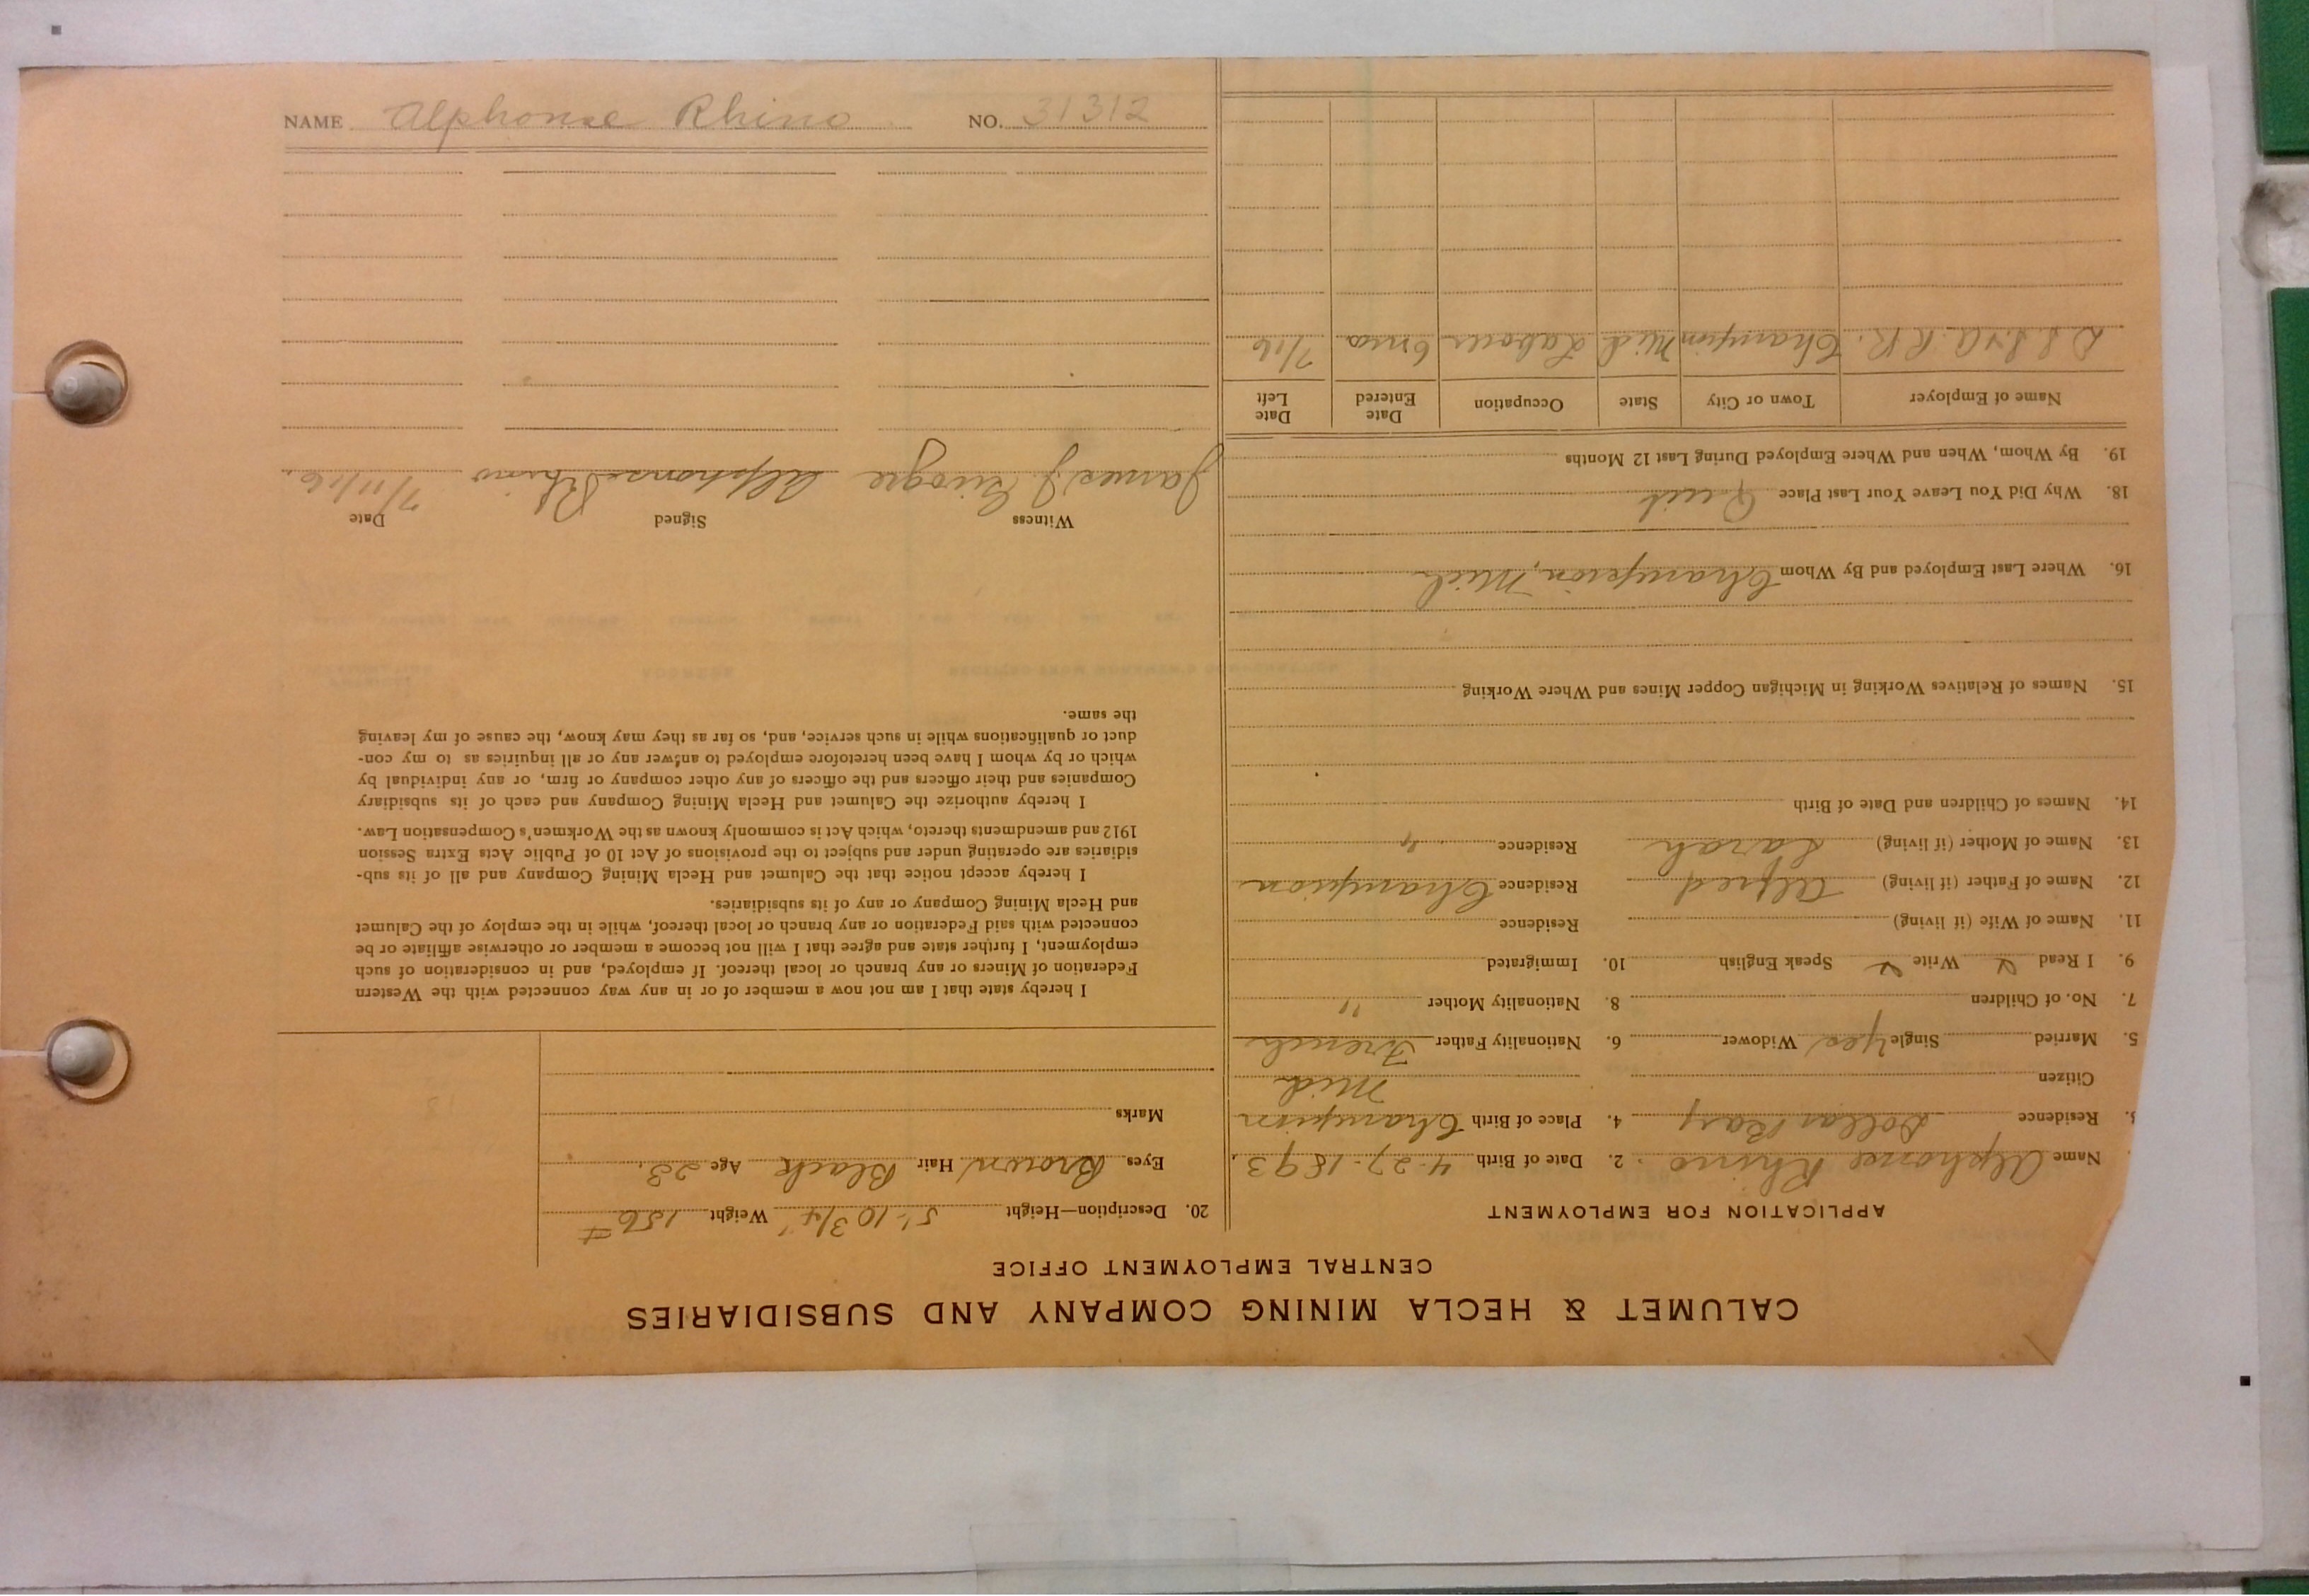 CALUMET & HECLA MINING COMPANY AND SUBSIDIARIES
CENTRAL EMPLOYMENT OFFICE
APPLICATION FOR EMPLOYMENT
Name Alphonse Rhino. 2. Date of Birth 4-27-1893.
Residence Dollar Bay 4. Place of Birth Champion
Citizen Mich
5. Married Single Yes Widower 6. Nationality Father French
7. No. of Children 8. Nationality Mother "
9. I Read ✓ Write ✓ Speak English 10. Immigrated
11. Name of Wife (if living) Residence
12. Name of Father (if living) Alfred Residence Champion
13. Name of Mother (if living) Sarah Residence "
14. Names of Children and Date of Birth
15. Names of Relatives Working in Michigan Copper Mines and Where Working
16. Where Last Employed and By Whom Champion, Mich
18. Why Did You Leave Your Last Place Quit
19. By Whom, When and Where Employed During Last 12 Months
Name of Employer Town or City State Occupation Date Entered Date Left
D.S.S.&A. R.R. Champion Mich Laborer 6 mos 7/16
20. Description—Height 5'-10 3/4" Weight 156 #
Eyes Brown Hair Black Age 23.
Marks
I hereby state that I am not now a member of or in any way connected with the Western
Federation of Miners or any branch or local thereof. If employed, and in consideration of such
employment, I further state and agree that I will not become a member or otherwise affiliate or be
connected with said Federation or any branch or local thereof, while in the employ of the Calumet
and Hecla Mining Company or any of its subsidiaries.
I hereby accept notice that the Calumet and Hecla Mining Company and all of its sub-
sidiaries are operating under and subject to the provisions of Act 10 of Public Acts Extra Session
1912 and amendments thereto, which Act is commonly known as the Workmen's Compensation Law.
I hereby authorize the Calumet and Hecla Mining Company and each of its subsidiary
Companies and their officers and the officers of any other company or firm, or any individual by
which or by whom I have been heretofore employed to answer any or all inquiries as to my con-
duct or qualifications while in such service, and, so far as they may know, the cause of my leaving
the same.
Witness Signed Date
James J. Alphonse Rhino 7/11/16.
NAME Alphonse Rhino NO. 31312